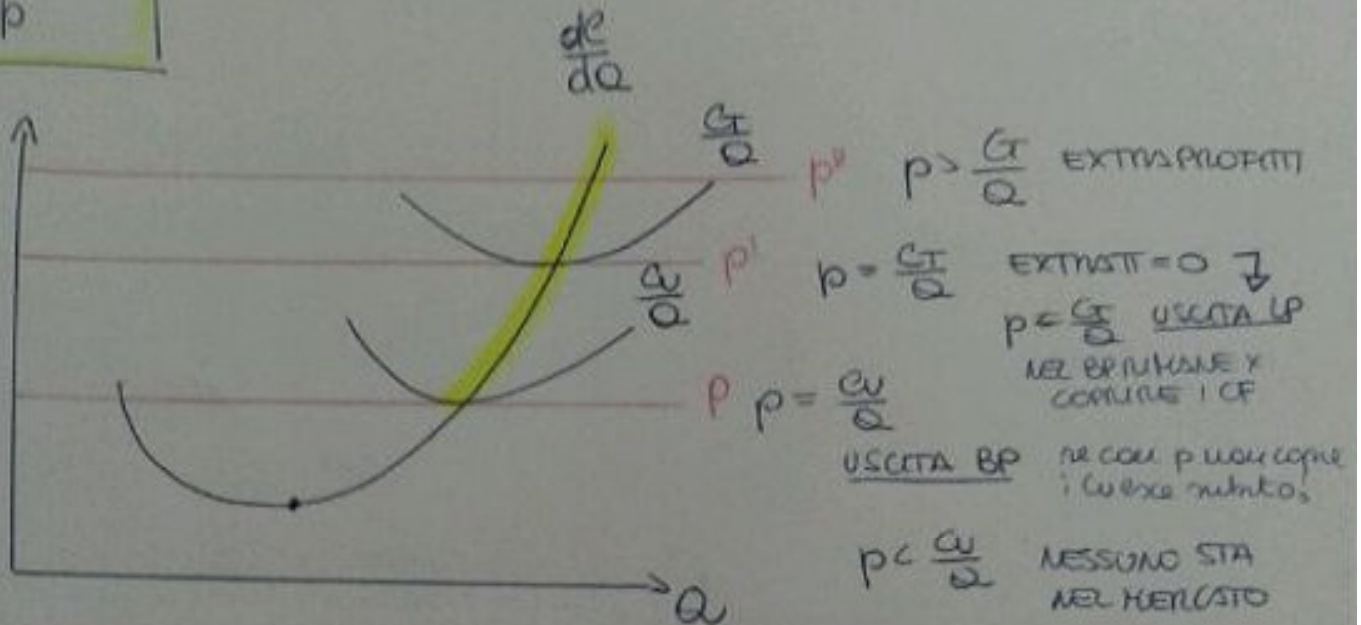 p
dC
dQ
CT
Q
p" p > CT/Q EXTRAPROFITTI
p' p = CT/Q EXTRATT = 0
CV
Q
p < CT/Q USCITA LP
NEL BP RIMANE X
COPRIRE I CF
p p = CV/Q
USCITA BP se con p non copre
i CV esce subito
p < CV/Q NESSUNO STA
NEL MERCATO
Q